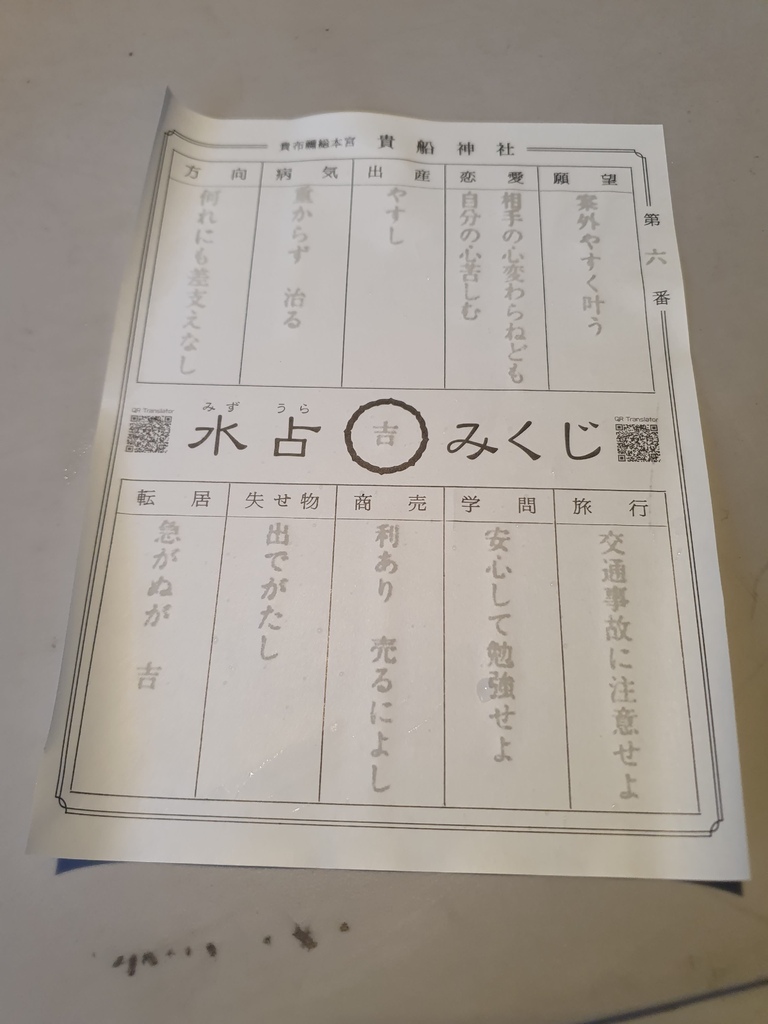 貴布禰総本宮 貴船神社
第六番
願望
案外やすく叶う
恋愛
相手の心変わらねども
自分の心苦しむ
出産
やすし
病気
重からず 治る
方向
何れにも差支えなし
QR Translator
みず うら
水占 吉 みくじ
QR Translator
旅行
交通事故に注意せよ
学問
安心して勉強せよ
商売
利あり 売るによし
失せ物
出でがたし
転居
急がぬが 吉